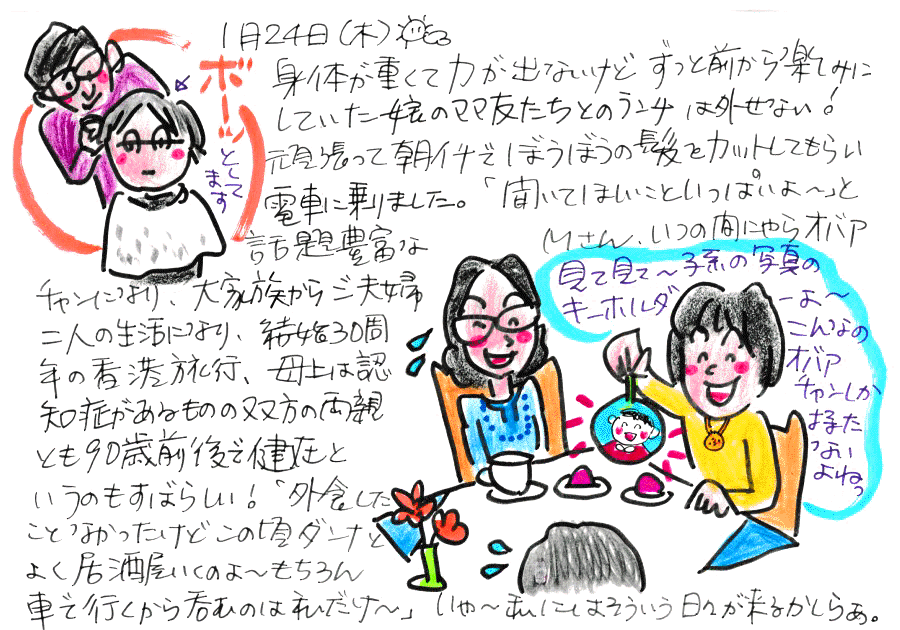 1月24日(木)
ボーッ
としてます
身体が重くて力が出ないけど ずっと前から楽しみに
していた娘のママ友たちとのランチは外せない!
頑張って朝イチでぼうぼうの髪をカットしてもらい
電車に乗りました。「聞いてほしいこといっぱいよ〜」と
話題豊富な
Mさん、いつの間にやらオバア
チャンになり、大家族からご夫婦
二人の生活になり、結婚30周
年の香港旅行、母上は認
知症があるものの双方の両親
とも90歳前後で健在と
いうのもすばらしい!「外食した
ことなかったけどこの頃ダンナと
よく居酒屋いくのよ〜もちろん
車で行くから呑むのは私だけ〜」いや〜私にはそういう日々が来るかしらぁ。
見て見て〜孫の写真の
キーホルダーよ〜
こんなの
オバア
チャンしか
持た
ないよね。